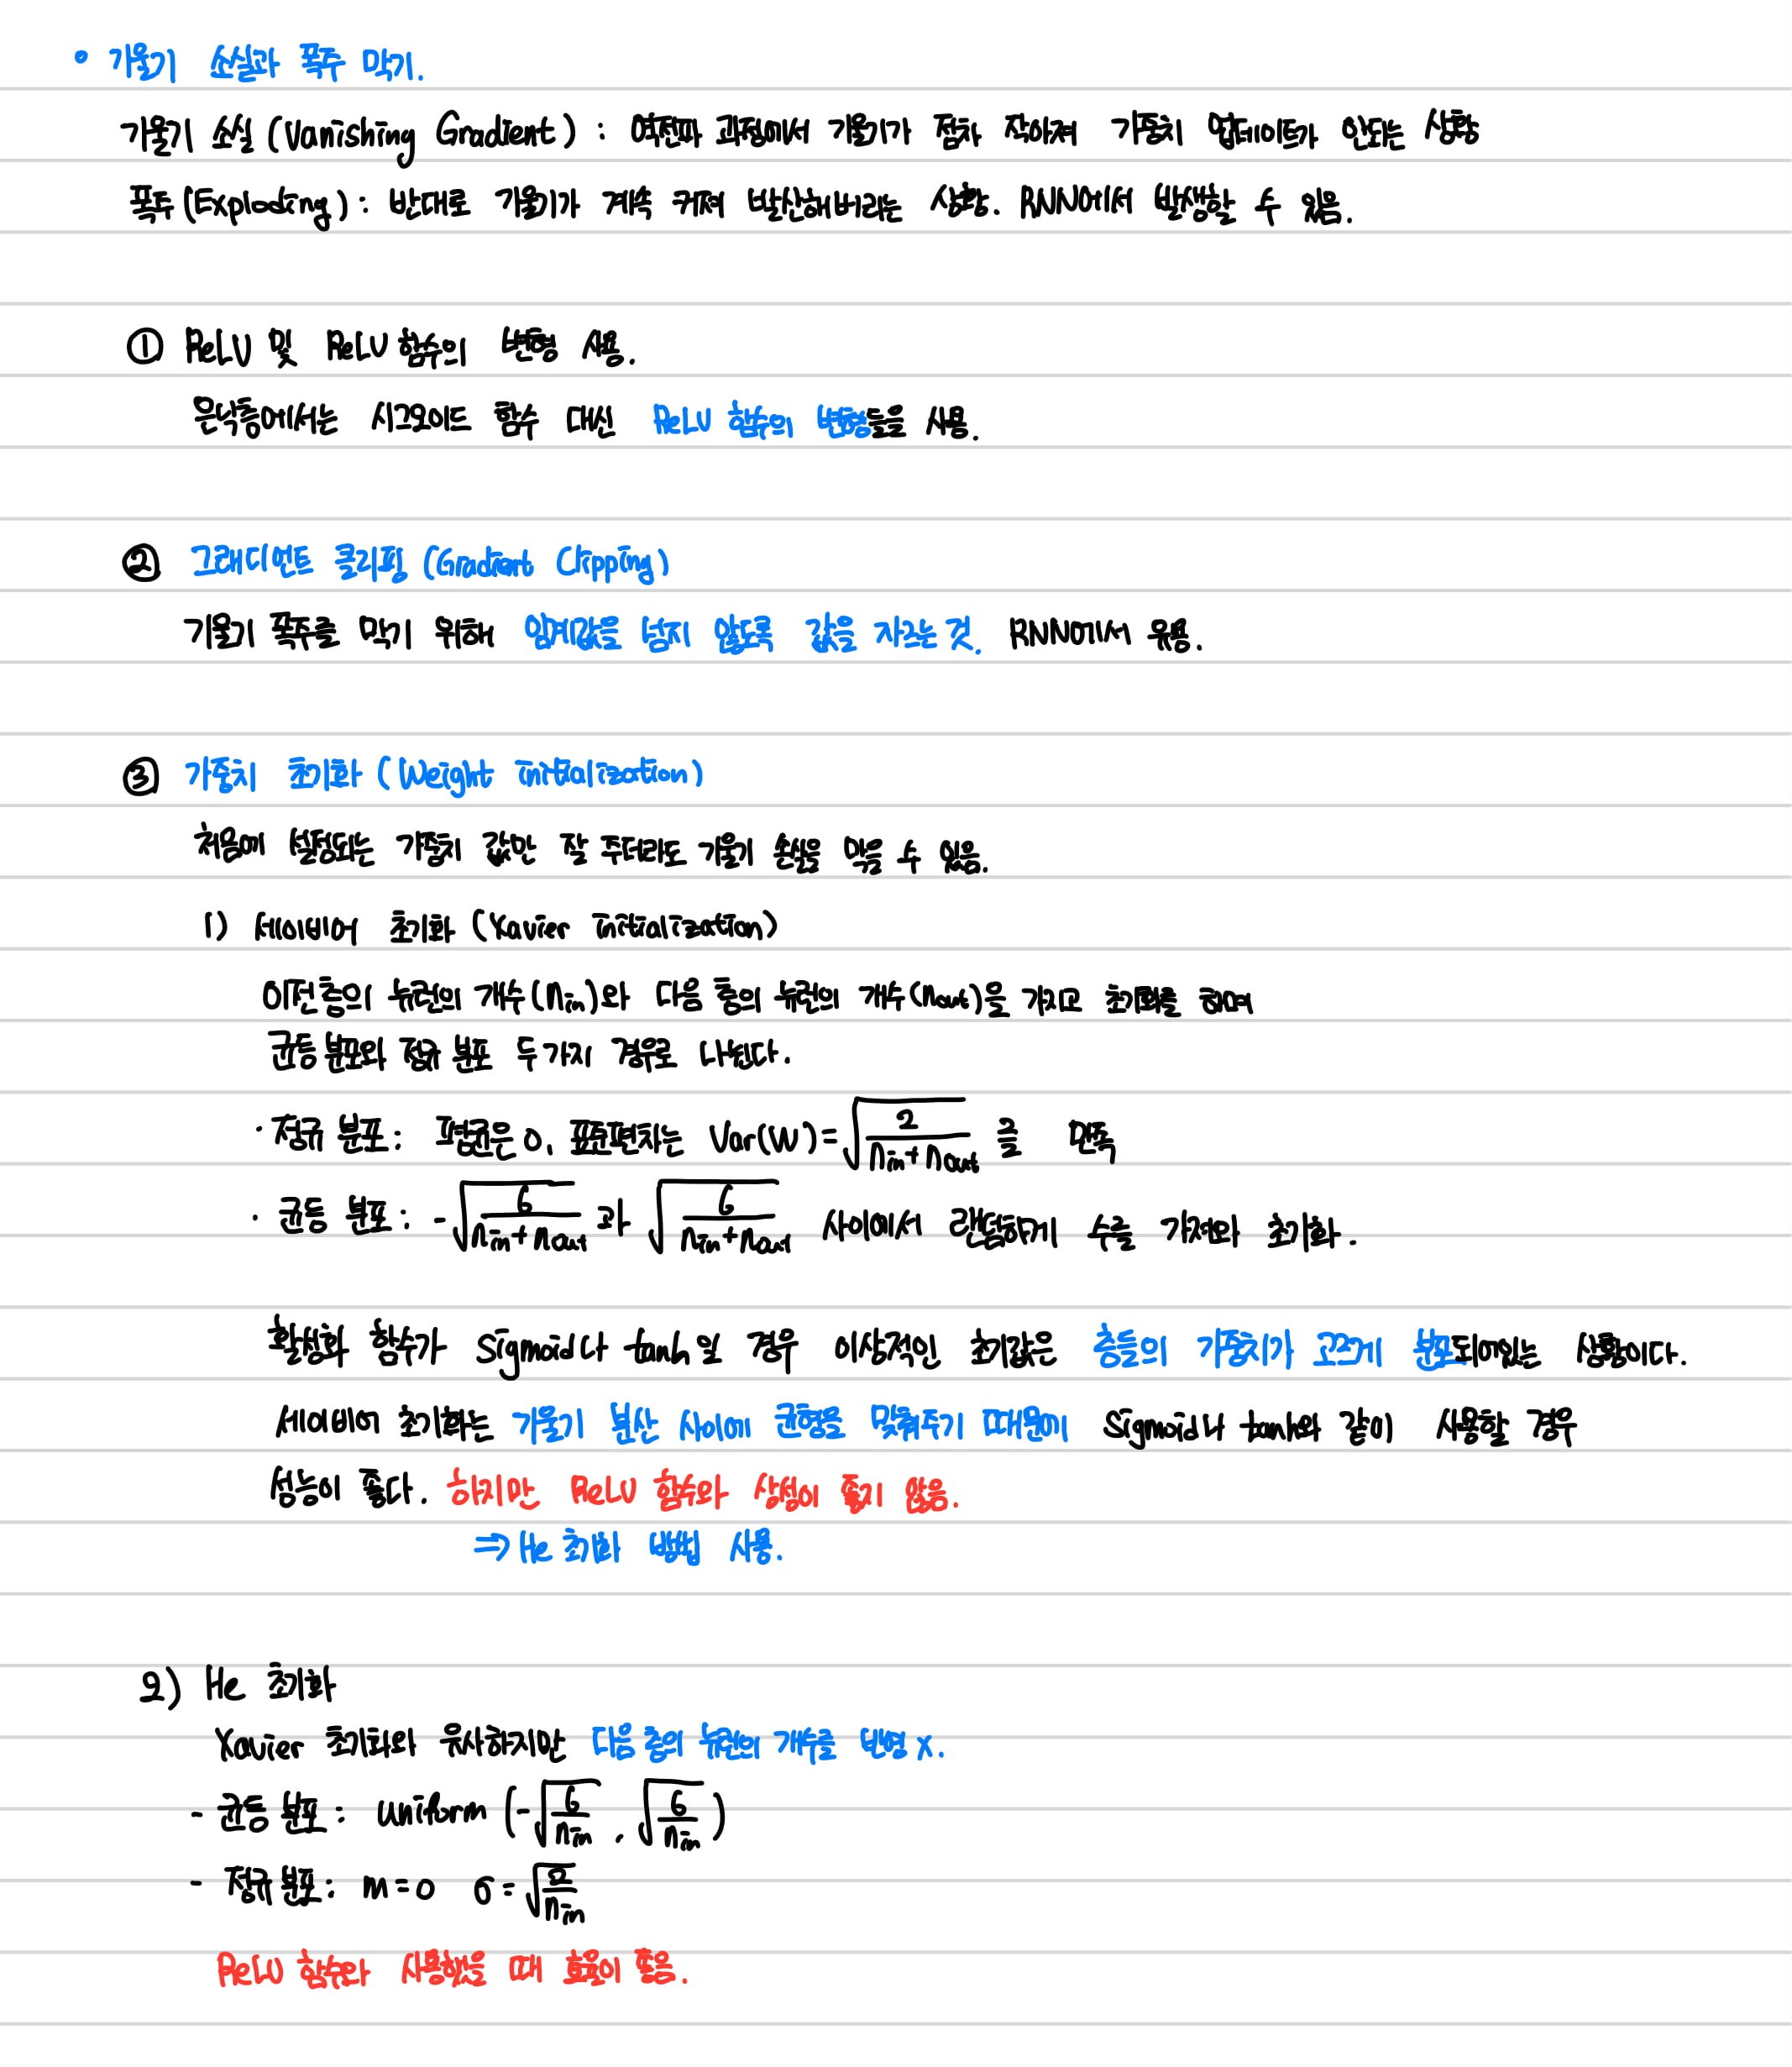 • 기울기 소실과 폭주 막기.
기울기 소실 (Vanishing Gradient) : 역전파 과정에서 기울기가 점차 작아져 가중치 업데이트가 안되는 상황
폭주 (Exploding) : 반대로 기울기가 계속 커져 발산해버리는 상황. RNN에서 발생할 수 있음.
① ReLU 및 ReLU 함수의 변형 사용.
은닉층에서는 시그모이드 함수 대신 ReLU 함수의 변형들을 사용.
② 그래디언트 클리핑 (Gradient Clipping)
기울기 폭주를 막기 위해 임계값을 넘지 않도록 값을 자르는 것. RNN에서 유용.
③ 가중치 초기화 (Weight initialization)
처음에 설정되는 가중치 값만 잘 주더라도 기울기 손실을 막을 수 있음.
1) 세이비어 초기화 (Xavier initialization)
이전 층의 뉴런의 개수(n_in)와 다음 층의 뉴런의 개수(n_out)을 가지고 초기화를 하며
균등 분포와 정규 분포 두 가지 경우로 나뉜다.
· 정규 분포 : 평균은 0, 표준편차는 Var(W) = √(2/(n_in + n_out)) 를 만족
· 균등 분포 : -√(6/(n_in + n_out)) 과 √(6/(n_in + n_out)) 사이에서 랜덤하게 수를 가져와 초기화.
활성화 함수가 Sigmoid나 tanh일 경우 이상적인 초기값은 층들의 가중치가 고르게 분포되어있는 상황이다.
세이비어 초기화는 기울기 분산 사이에 균형을 맞춰주기 때문에 Sigmoid나 tanh와 같이 사용할 경우
성능이 좋다. 하지만 ReLU 함수와 상성이 좋지 않음.
⇒ He 초기화 방법 사용.
2) He 초기화
Xavier 초기화와 유사하지만 다음 층의 뉴런의 개수를 반영 x.
- 균등 분포 : uniform (-√(6/n_in), √(6/n_in))
- 정규 분포 : m = 0 σ = √(2/n_in)
ReLU 함수와 사용했을 때 효율이 좋음.